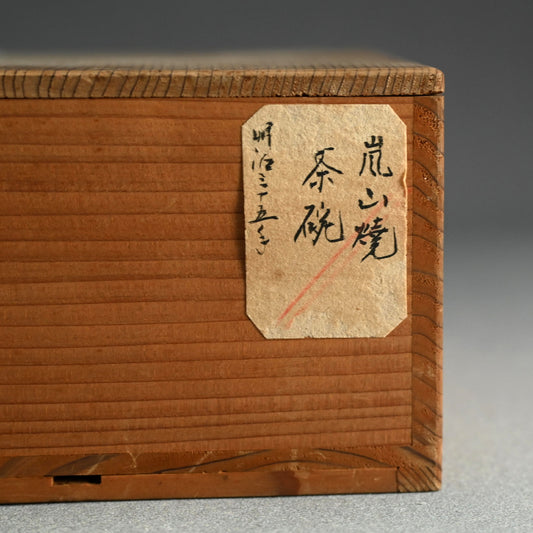 嵐山燒
茶碗
明治三十五年